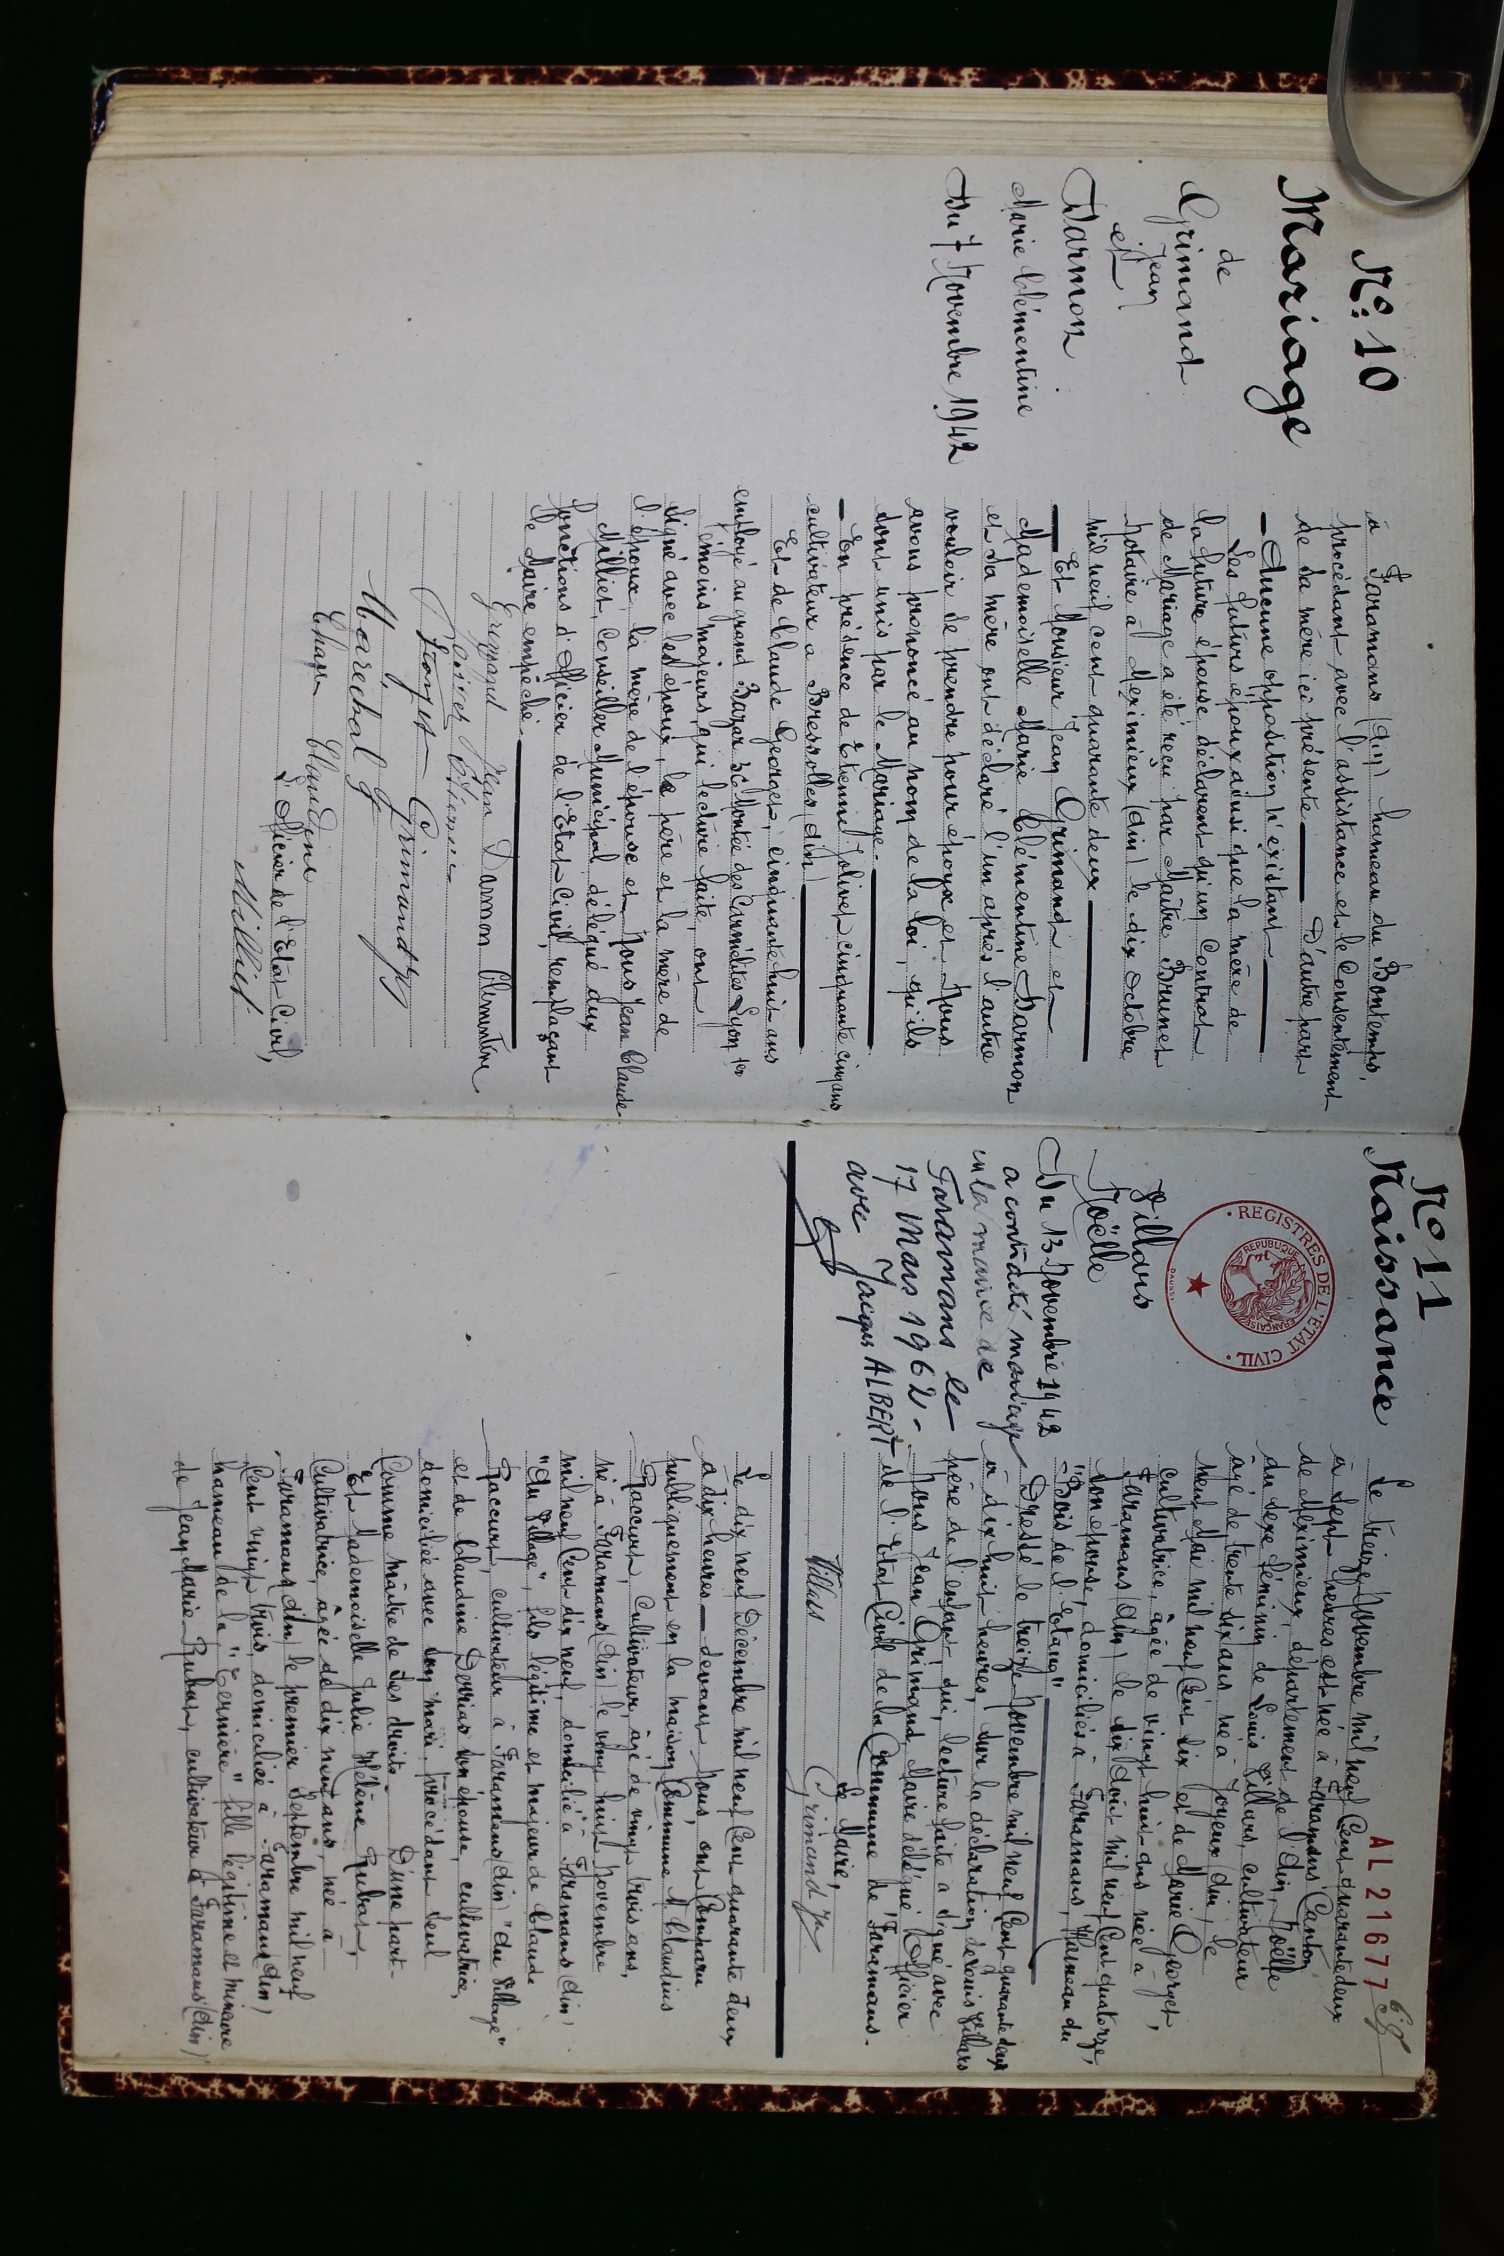 N° 10
Mariage
de
Grimand
Jean
et
Darmon
Marie Clémentine
Du 7 Novembre 1942
à Faramans (Ain) hameau du Bontemps,
procédant avec l'assistance et le Consentement
de sa mère ici présente D'autre part
Aucune opposition n'existant
Les futurs époux ainsi que la mère de
la future épouse déclarent qu'un Contrat
de Mariage a été reçu par Maître Brunet
Notaire à Meximieux (Ain) le dix octobre
mil neuf cent quarante deux
Et Monsieur Jean Grimand et
Mademoiselle Marie Clémentine Darmon
et sa mère ont déclaré l'un après l'autre
vouloir se prendre pour époux et Nous
avons prononcé au nom de la loi, qu'ils
sont unis par le Mariage.
En présence de Etienne Jolivet cinquante cinq ans,
cultivateur a Bressolles (Ain)
Et de Claude Georges, cinquante huit ans
employé au grand Bazar 30 Montée des Carmélites Lyon 1er
témoins majeurs, qui lecture faite, ont
signé avec les époux, le père et la mère de
l'époux, la mère de l'épouse et Nous Jean Claude
Milliet, Conseiller Municipal délégué aux
fonctions d'officier de l'Etat Civil, remplaçant
le Maire empêché.
Grimand Jean Darmon Clémentine
Jolivet Etienne
Georges Grimand
Marechal G
Chann Claudine
L'officier de l'Etat Civil,
Milliet
N° 11
Naissance
REGISTRES DE L'ETAT CIVIL
REPUBLIQUE FRANÇAISE
Villars
Noëlle
Du 13 Novembre 1942
a contracté mariage
en la mairie de
Faramans le
17 Mars 1962 -
avec Jacques ALBERT
AL 21677
Le treize Novembre mil neuf Cent quarante deux
à sept heures est née à Faramans Canton
de Meximieux, département de l'Ain, Noëlle
du sexe féminin de Louis Villars, cultivateur
âgé de trente deux ans né à Joyeux (Ain) le
neuf Mai mil neuf Cent dix et de Marie Georget,
cultivatrice, âgée de vingt huit ans née à
Faramans (Ain) le dix Août mil neuf Cent quatorze,
son épouse, domiciliés à Faramans, Hameau du
"Bois de l'Etang"
Dressé le treize Novembre mil neuf Cent quarante deux
à dix huit heures, sur la déclaration de Louis Villars
père de l'enfant qui, lecture faite a signé avec
Nous Jean Grimand, Maire délégué Officier
de l'Etat Civil de la Commune de Faramans.
Le Maire,
Villars Grimand
Le dix neuf Décembre mil neuf Cent quarante deux
à dix heures devant Nous ont Comparu
publiquement en la maison Commune M. Claudius
Raccurt, Cultivateur, âgé de vingt trois ans,
né à Faramans (Ain) le vingt huit Novembre
mil neuf Cent dix neuf, domicilié à Faramans (Ain)
"Au Village", fils légitime et majeur de Claude
Raccurt, cultivateur à Faramans (Ain) "Au Village"
et de Claudine Derrias son épouse, cultivatrice,
domiciliée avec son mari, procédant seul
Comme maître de ses droits D'une part-
Et Mademoiselle Julie Hélène Rubat,
Cultivatrice, âgée de dix neuf ans, née à
Faramans (Ain) le premier Septembre mil neuf
Cent vingt trois, domiciliée à Faramans (Ain)
hameau de la fille légitime et mineure
de Jean Marie Rubat, cultivateur à Faramans (Ain)